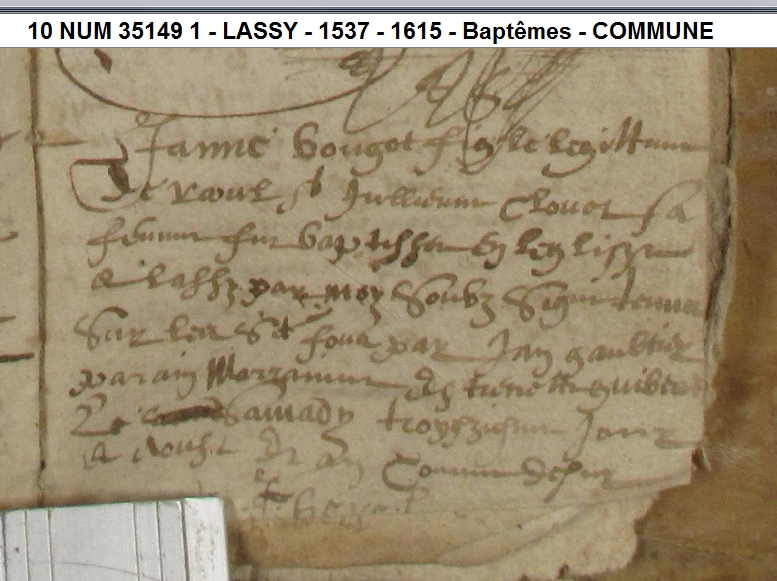 10 NUM 35149 1 - LASSY - 1537 - 1615 - Baptêmes - COMMUNE
Janne bougot fille legittime
de raoul et Jullienne Clouet sa
femme fut baptissee en leglisse
de lassy par moy soubz signe tenue
sur les st fons par Jan gaultier
parain marraine guibert
le samady troyziesme Jour
de aoust an comme dessur